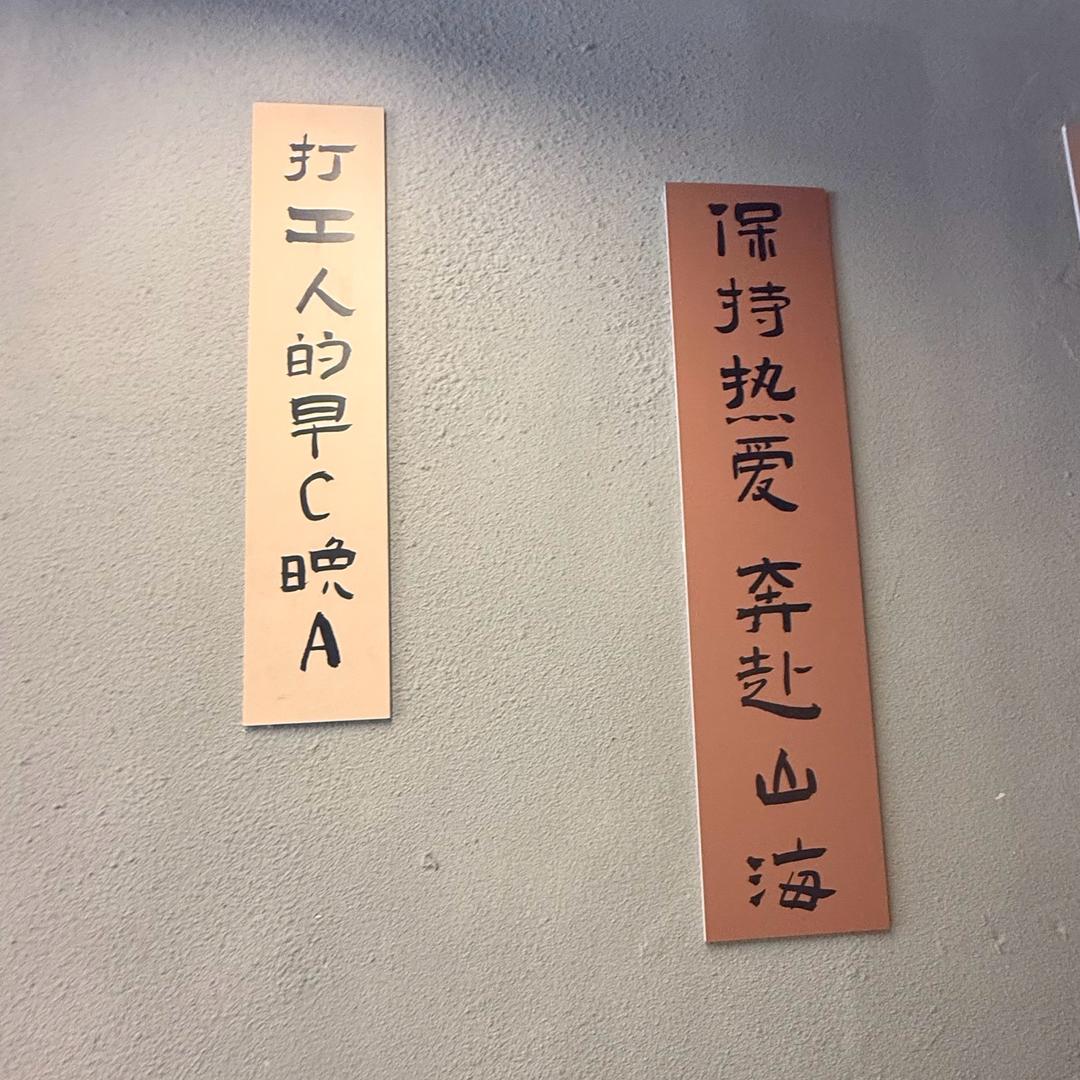 打工人的早C晚A
保持热爱 奔赴山海